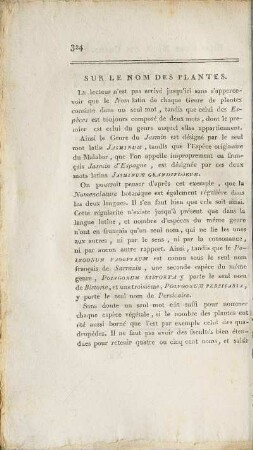 324
SUR LE NOM DES PLANTES.
Le lecteur n'est pas arrivé jusqu'ici sans s'apperce-
voir que le Nom latin de chaque Genre de plantes
consiste dans un seul mot, tandis que celui des Es-
pèces est toujours composé de deux mots, dont le pre-
mier est celui du genre auquel elles appartiennent.
Ainsi le Genre du Jasmin est désigné par le seul
mot latin JASMINUM, tandis que l'Espèce originaire
du Malabar, que l'on appelle improprement en fran-
çais Jasmin d'Espagne, est désignée par ces deux
mots latins JASMINUM GRANDIFLORUM.
On pourroit penser d'après cet exemple, que la
Nomenclature botanique est également régulière dans
les deux langues. Il s'en faut bien que cela soit ainsi.
Cette régularité n'existe jusqu'à présent que dans la
langue latine, et nombre d'espèces du même genre
n'ont en français qu'un seul nom, qui ne lie les unes
aux autres, ni par le sens, ni par la consonnance,
ni par aucun autre rapport. Ainsi, tandis que le Po-
LYGONUM FAGOPYRUM est connu sous le seul nom
français de Sarrasin, une seconde espèce du même
genre, POLYGONUM BISTORTA y porte le seul nom
de Bistorte, et une troisieme, POLYGONUM PERSICARIA,
y porte le seul nom de Persicaire.
Sans doute un seul mot eût suffi pour nommer
chaque espèce végétale, si le nombre des plantes eut
été aussi borné que l'est par exemple celui des qua-
drupèdes. Il ne faut pas avoir des facultés bien éten-
dues pour retenir quatre ou cinq cent noms, et